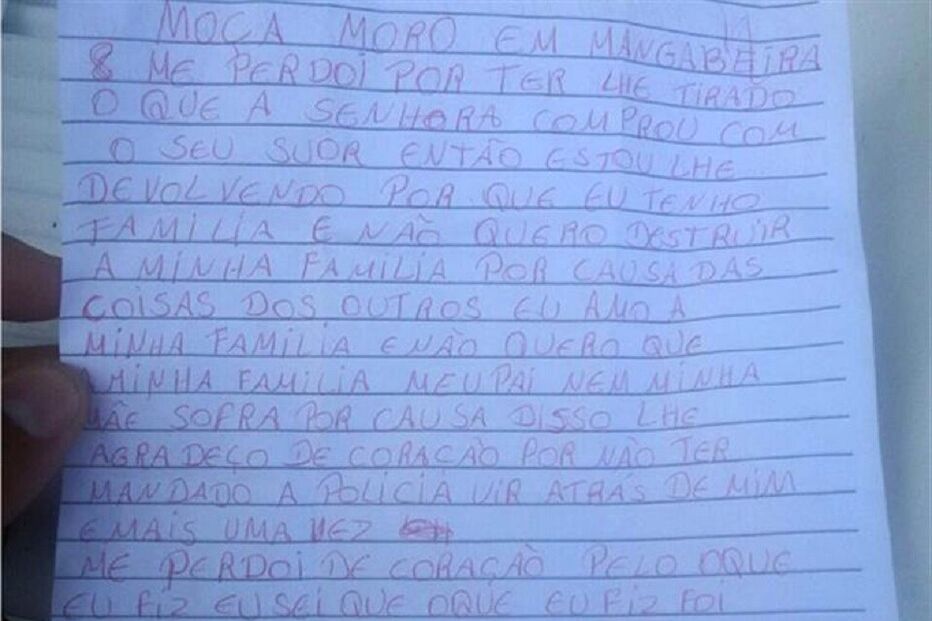 MOÇA MORO EM MANGABEIRA
ME PERDOI POR TER LHE TIRADO
O QUE A SENHORA COMPROU COM
O SEU SUOR ENTÃO ESTOU LHE
DEVOLVENDO POR QUE EU TENHO
FAMILIA E NÃO QUERO DESTRUIR
A MINHA FAMILIA POR CAUSA DAS
COISAS DOS OUTROS EU AMO A
MINHA FAMILIA E NÃO QUERO QUE
A MINHA FAMILIA MEU PAI NEM MINHA
MÃE SOFRA POR CAUSA DISSO LHE
AGRADEÇO DE CORAÇÃO POR NÃO TER
MANDADO A POLICIA VIR ATRÁS DE MIM
E MAIS UMA VEZ
ME PERDOI DE CORAÇÃO PELO OQUE
EU FIZ EU SEI QUE OQUE EU FIZ FOI